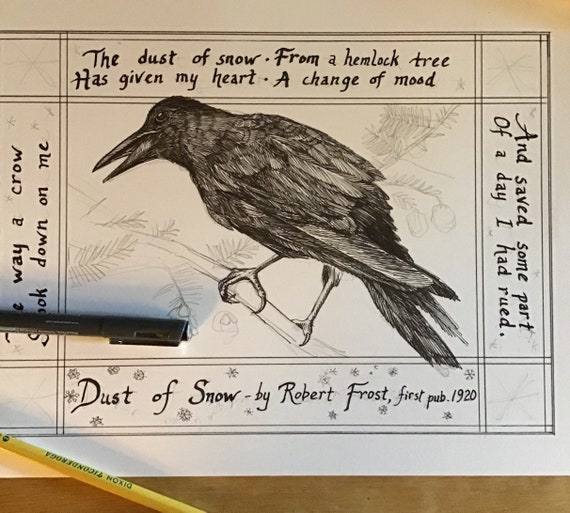 way a crow
down on me
The dust of snow · From a hemlock tree
Has given my heart · A change of mood
And saved some part
Of a day I had rued.
Dust of Snow - by Robert Frost, first pub. 1920
DIXON TICONDEROGA